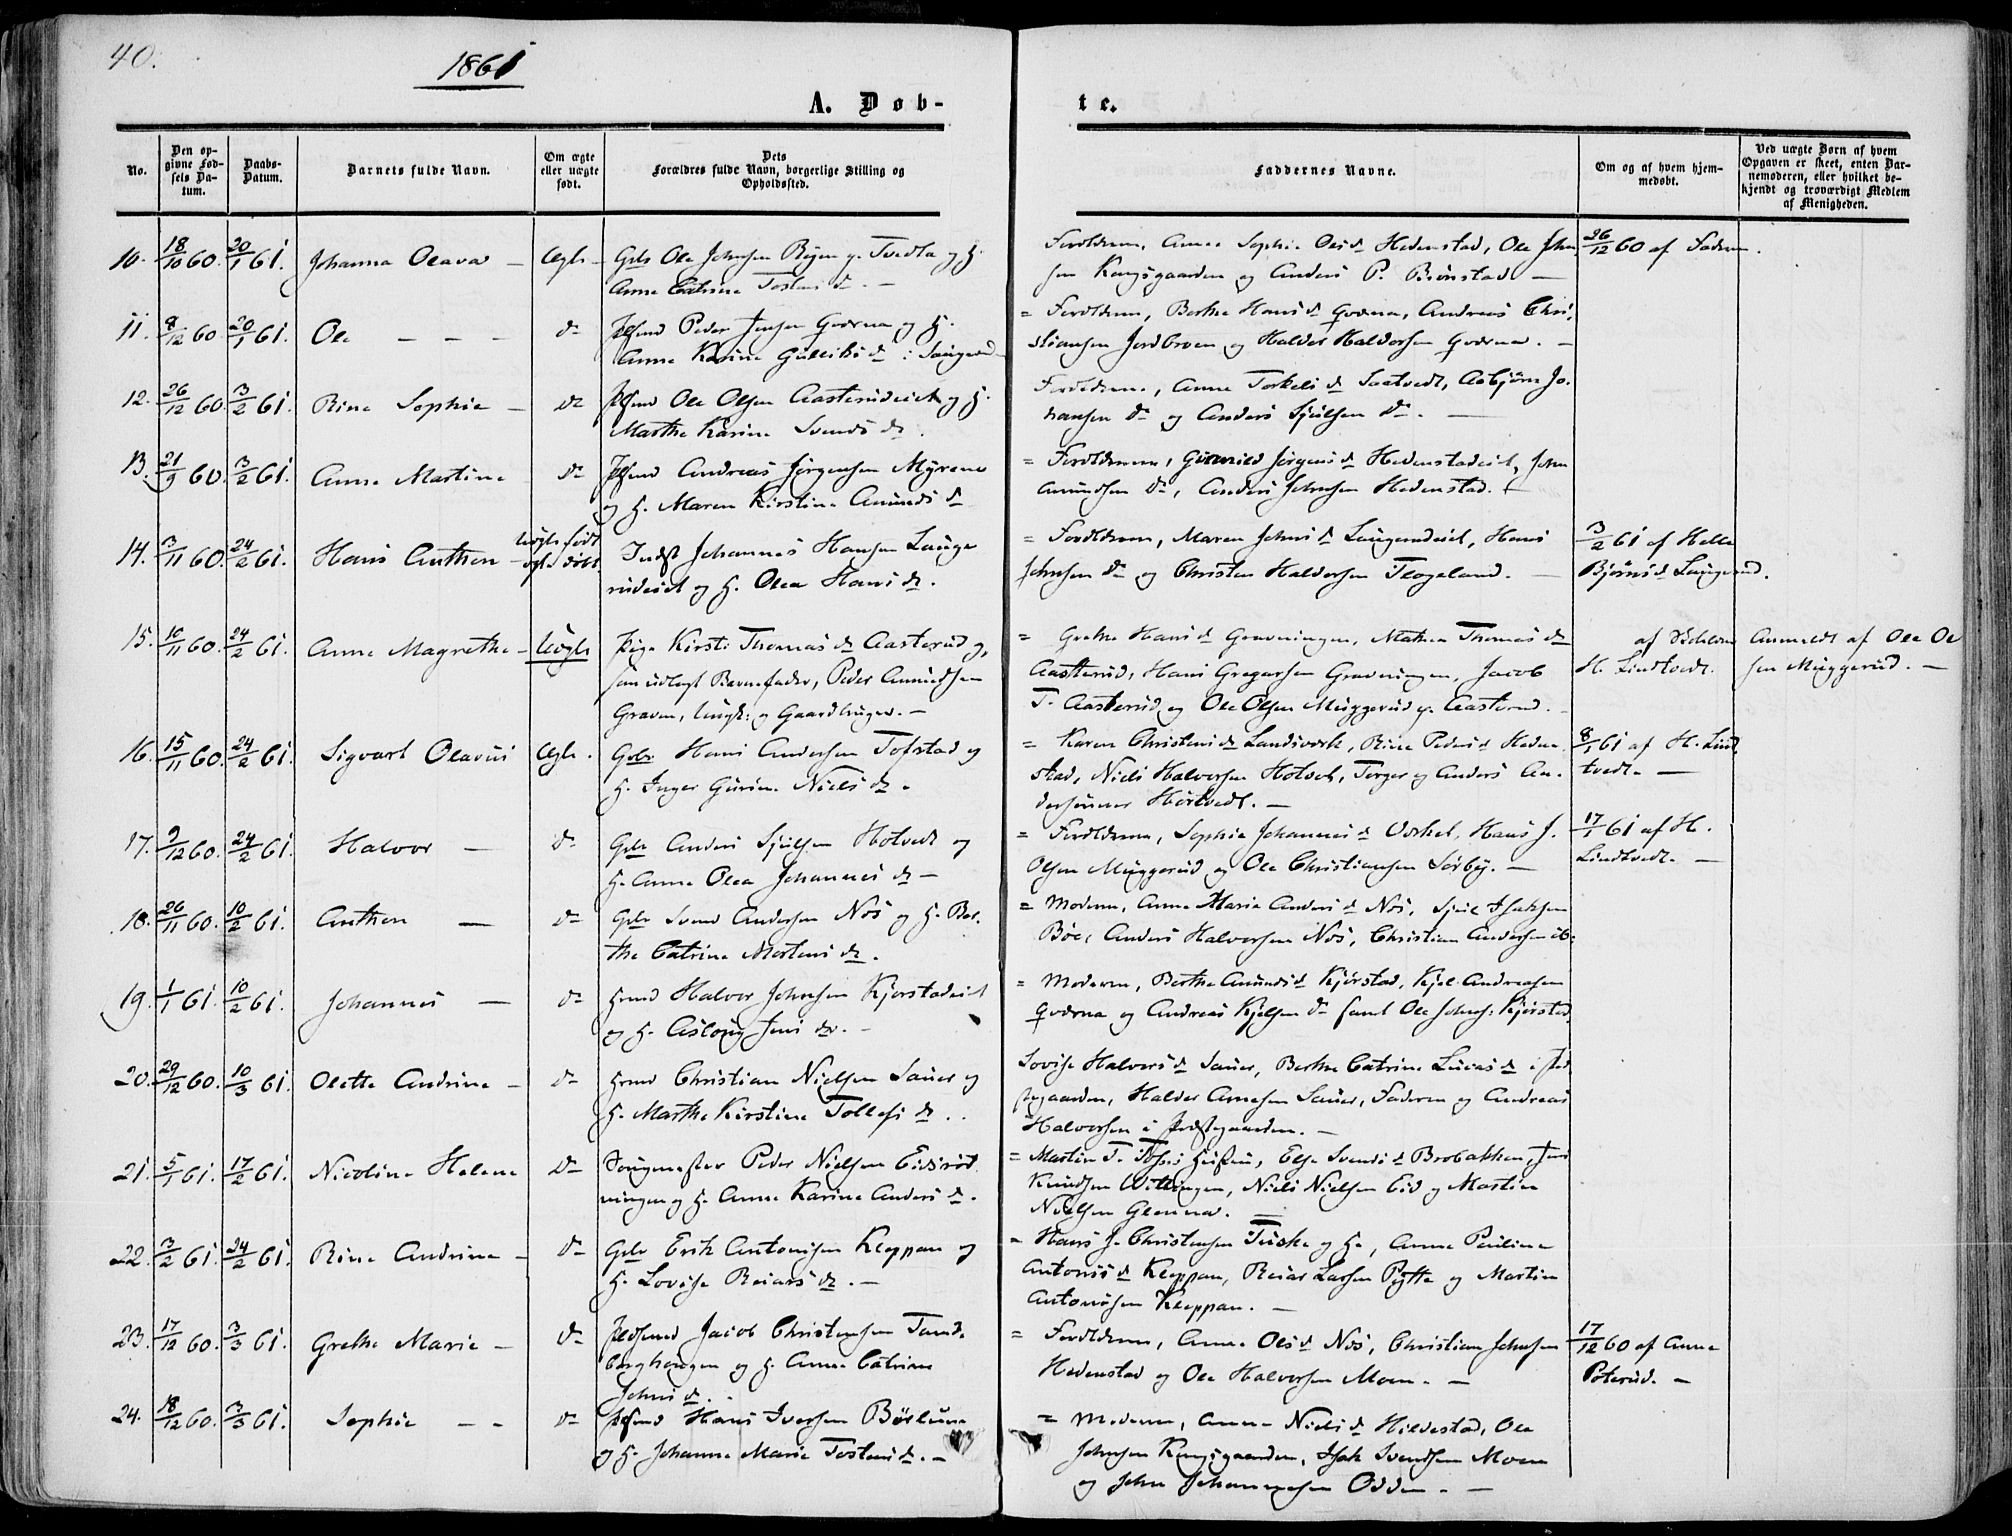 40.
1861
A. Døb-
te.
No.
Den op-
givne Fød-
sels Da-
tum.
Daabs-
Datum.
Barnets fulde Navn.
Om ægte
eller uægte
født.
Dets
Forældres fulde Navn, borgerlige Stilling og
Opholdssted.
Faddernes Navne.
Om og af hvem hjem-
medøbt.
Ved uægte Børn af hvem
Opgaven er skeet, enten Bar-
nemoderen, eller hvilket be-
kjendt og troværdigt Medlem
af Menigheden.
10. 18/10 60. 20/1 61. Johanna Olava Ægte Gbr Ole Johnsen og H.
Anne Catrine Tostens d.
Forældrene, Anne Sophie Ols d. Hedenstad, Ole John-
sen Kongsgaarden og Anders P. Brønstad
26/12 60 af Faderen.
11. 8/12 60 20/1 61. Ole do Peder Jensen Goverud og H.
Anne Karine Gulliks d.
= Forældrene, Berthe Hans d., Andreas Chri-
stiansen og Halder Haldorsen
12. 26/12 60. 3/2 61. Rine Sophie do Ole Olsen Aasterudeiet og H.
Marthe Karine Svends d.
Forældrene, Anne Torkels d. Saatvedt, Asbjørn Jo-
hansen do og Anders Sjulsen do.
13. 21/9 60. 3/2 61. Anne Martine do Andreas Jørgensen Myrene
og H. Maren Kirstine Amunds d.
= Forældrene, Gunnild Jørgens d. Hedenstadeiet, John
Amundsen do, Anders Johnsen Hedenstad.
14. 3/11 60. 24/2 61. Hans Anthon Uægte født
ægte døbt. Indst Johannes Hansen Lauge-
rudeiet og H. Olea Hans d.
= Forældrene, Maren Johns d. Laugerudeiet, Hans
Johnsen do og Christen Haldorsen Teigeland.
3/2 61 af Helle
Bjørns d. Laugerud.
15. 10/11 60. 24/2 61. Anne Magrethe Uægte Pige Kirsti Thomas d. Aasterud og,
som udlagt Barnefader, Peder Amundsen
Graven, Ungk: og Gaardbruger.
= Grethe Hans d. Gravningen, Mathea Thomas d.
Aasterud, Hans Gregersen Gravningen, Jacob
T. Aasterud og Ole Olsen Muggerud p. Aasterud.
af
H. Lindtvedt.
Anmeldt af Ole Ol-
sen Muggerud.
16. 15/11 60. 24/2 61. Sigvart Olavus Ægte. Gbr. Hans Andersen Tofstad og
H. Inger Gurine Niels d.
= Karen Christens d. Landsværk, Rine Peders d. Heden-
stad, Niels Halvorsen Hotvet, Torger og Anders An-
dersønner Hørtvedt.
8/1 61 af H. Lind-
tvedt.
17. 9/12 60. 24/2 61. Halvor do Gbr Anders Sjulsen Hotvedt og
H. Anne Olea Johannes d.
= Forældrene, Sophie Johannes d., Hans J.
Olsen Muggerud og Ole Christiansen Sørby.
17/1 61 af H.
Lindtvedt.
18. 26/11 60. 10/2 61. Anthon do Gbr Svend Andersen Nøs og H. Ber-
the Catrine Mortens d.
= Moderen, Anne Marie Anders d. Nøs, Sjul Isaksen
Bøe, Anders Halvorsen Nøs, Christian Andersen ib:
19. 1/1 61. 10/2 61. Johannes do Hmd Halvor Johnsen Kjørstadeiet
og H. Aslaug Jens d.
= Moderen, Berthe Amunds d. Kjørstad, Kjel Andreasen
og Andreas Kjelsen do samt Ole Johns: Kjørstad.
20. 29/12 60. 10/3 61. Olette Andrine do Hmd Christian Nielsen Sauer og
H. Marthe Kirstine Tollefs d.
Lovise Halvors d. Sauer, Berthe Catrine Lucas d. i Præ-
stegaarden, Halder Arnesen Sauer, Faderen og Andreas
Halvorsen i Præstegaarden.
21. 5/1 61. 17/2 61. Nicoline Helene do Peder Nielsen
og H. Anne Karine Anders d.
= Martin T. Hustru, Else Svends d. Brobakken, Jens
Knudsen Wittingen, Niels Nielsen Eid og Martin
Nielsen Glenna.
22. 3/2 61. 24/2 61. Rine Andrine do Gbr Erik Antonisen Kleppan og
H. Lovise Reiars d.
= Hans J. Christensen Tuske og H., Anne Pauline
Antonis d. Kleppan, Reiar Larsen Pytte og Martin
Antonisen Kleppan.
23. 17/12 60. 3/3 61. Grethe Marie do Jacob Christensen Tand-
berghougen og H. Anne Catrine
Johns d.
= Forældrene, Anne Ols d. Nøs, Christian Johnsen
Hedenstad og Ole Halvorsen Moen.
17/12 60 af Anne
Poterud.
24. 18/12 60. 3/3 61. Sophie do Hans Iversen Børlune
og H. Johanne Marie Tostens d.
= Moderen, Anne Niels d. Hildestad, Ole
Johnsen Kongsgaarden, Isak Svendsen Moen
og John Johannesen Odden.